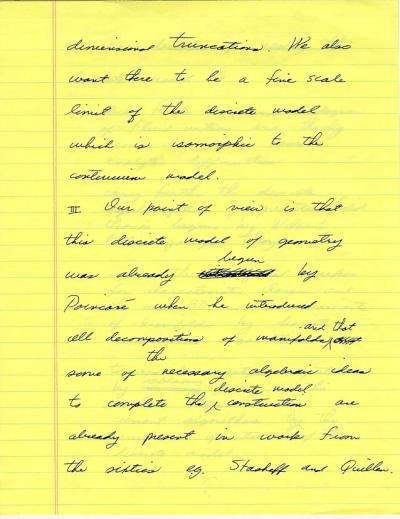 dimensional truncations. We also
want there to be a fine scale
limit of the discrete model
which is isomorphic to the
continuum model.
III Our point of view is that
this discrete model of geometry
was already begun by
Poincaré when he introduced
cell decompositions of manifolds, and that
some of the necessary algebraic ideas
to complete the discrete model construction are
already present in work from
the sixties eg. Stasheff and Quillen.